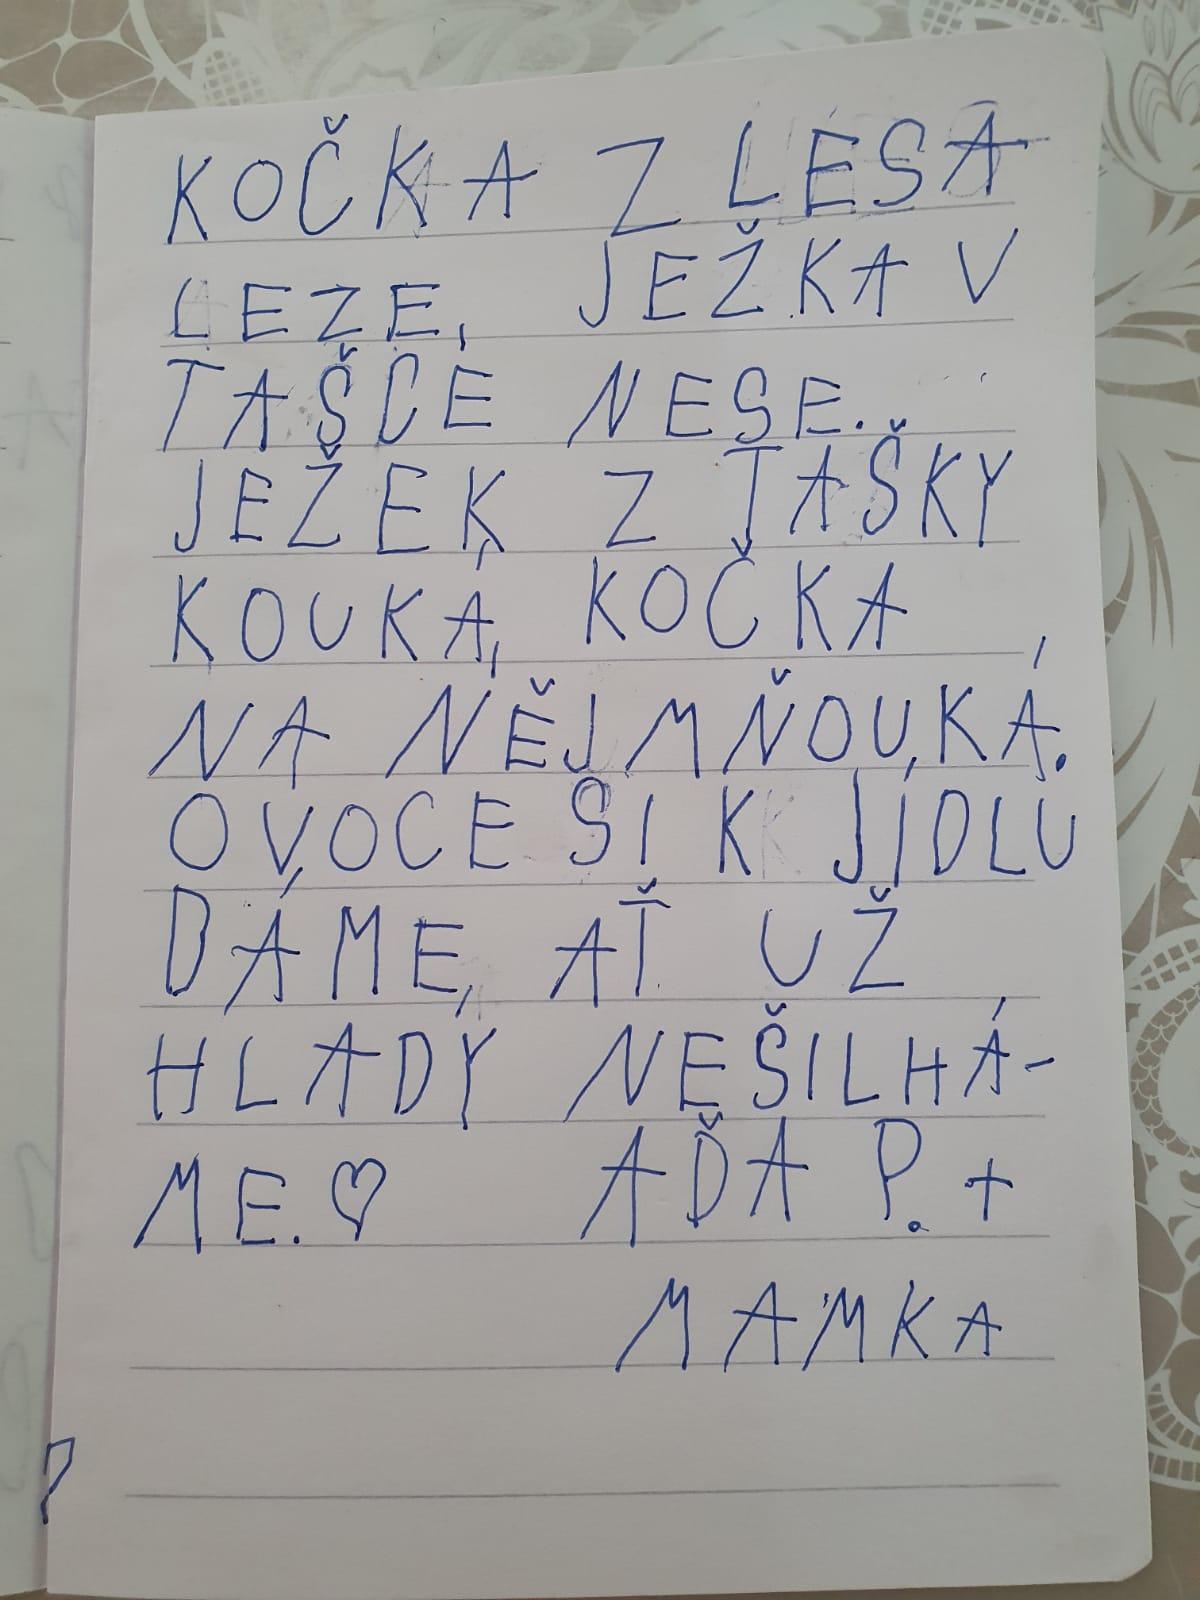 KOČKA Z LESA
LEZE, JEŽKA V
TAŠCE NESE.
JEŽEK Z TAŠKY
KOUKÁ, KOČKA
NA NĚJ MŇOUKÁ.
OVOCE SI K JÍDLU
DÁME, AŤ UŽ
HLADY NEŠILHÁ-
ME. ♡ AĎA P. +
MAMKA